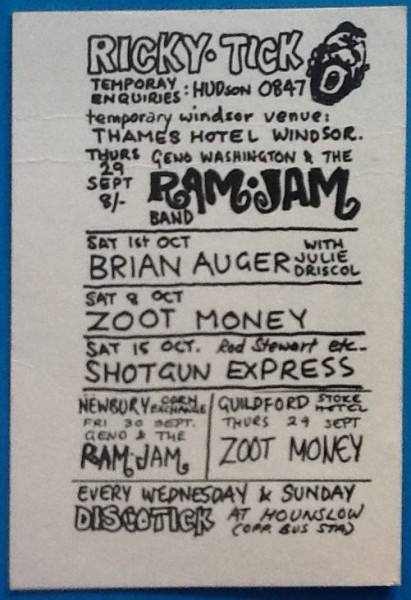 RICKY·TICK
TEMPORAY
ENQUIRIES: HUDSON 0847
temporary windsor venue:
THAMES HOTEL WINDSOR.
THURS
29
SEPT
8/-
GENO WASHINGTON & THE
RAM·JAM
BAND
SAT 1st OCT
BRIAN AUGER
WITH
JULIE
DRISCOL
SAT 8 OCT
ZOOT MONEY
SAT 15 OCT. Rod Stewart etc-
SHOTGUN EXPRESS
NEWBURY CORN
EXCHANGE
FRI 30 SEPT.
GENO & THE
RAM·JAM
GUILDFORD STOKE
HOTEL
THURS 29 SEPT
ZOOT MONEY
EVERY WEDNESDAY & SUNDAY
DISCOTICK AT HOUNSLOW
(OPP. BUS STA)